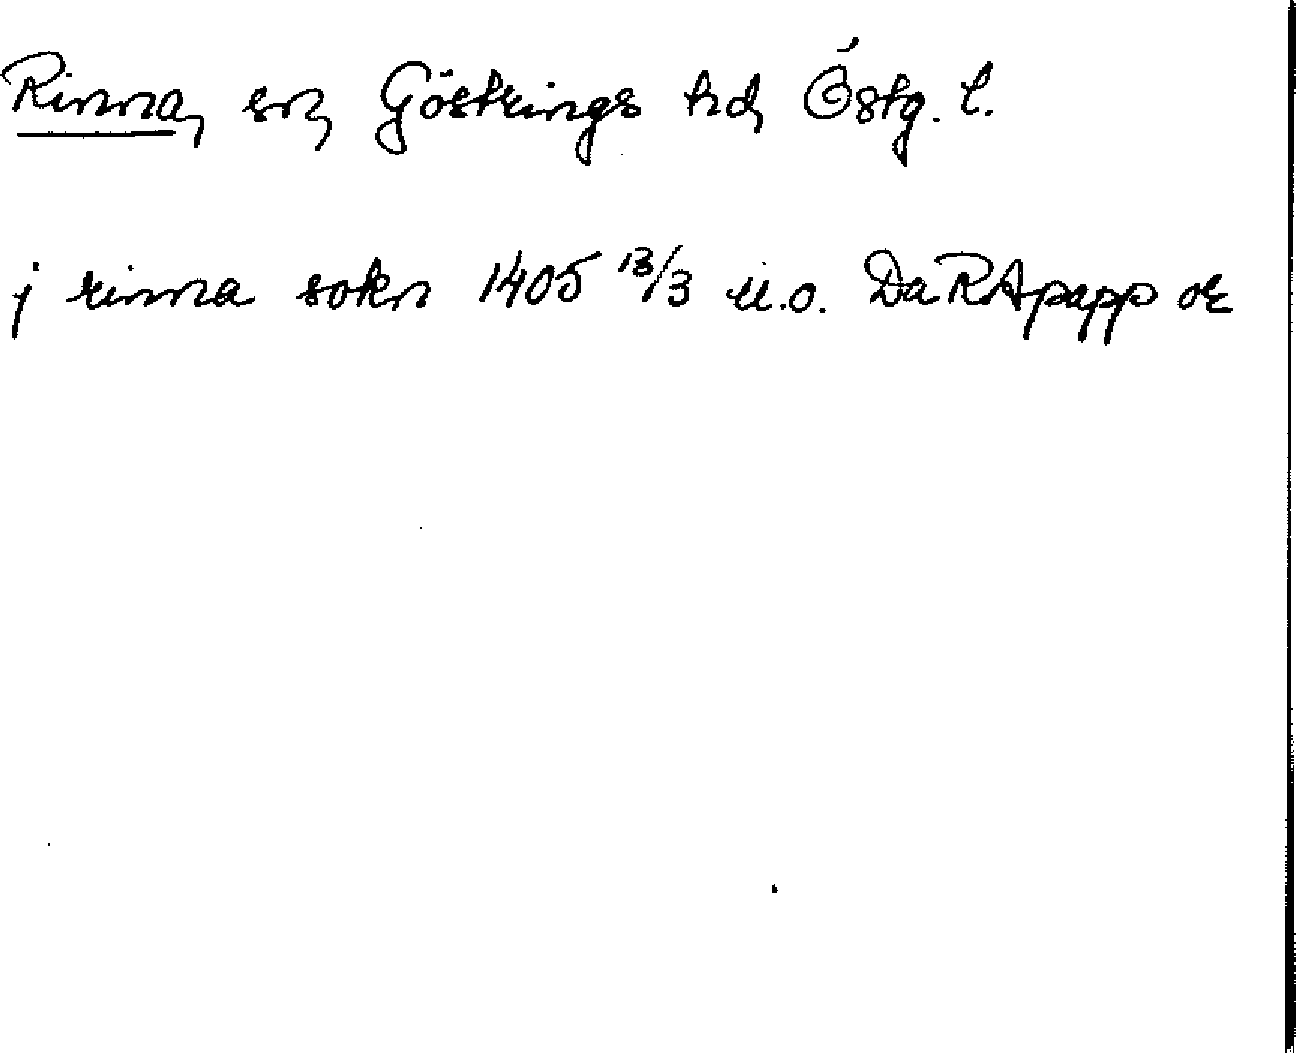 Rinna, sn, Göstrings hd, Östg. l.
j rinna sokn 1405 13/3 u.o. Da RApapp or